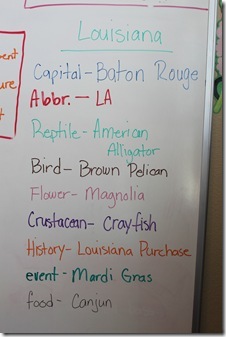 Louisiana
Capital- Baton Rouge
Abbr. - LA
Reptile- American
Alligator
Bird- Brown Pelican
Flower- Magnolia
Crustacean- Crayfish
History- Louisiana Purchase
event - Mardi Gras
food- Canjun